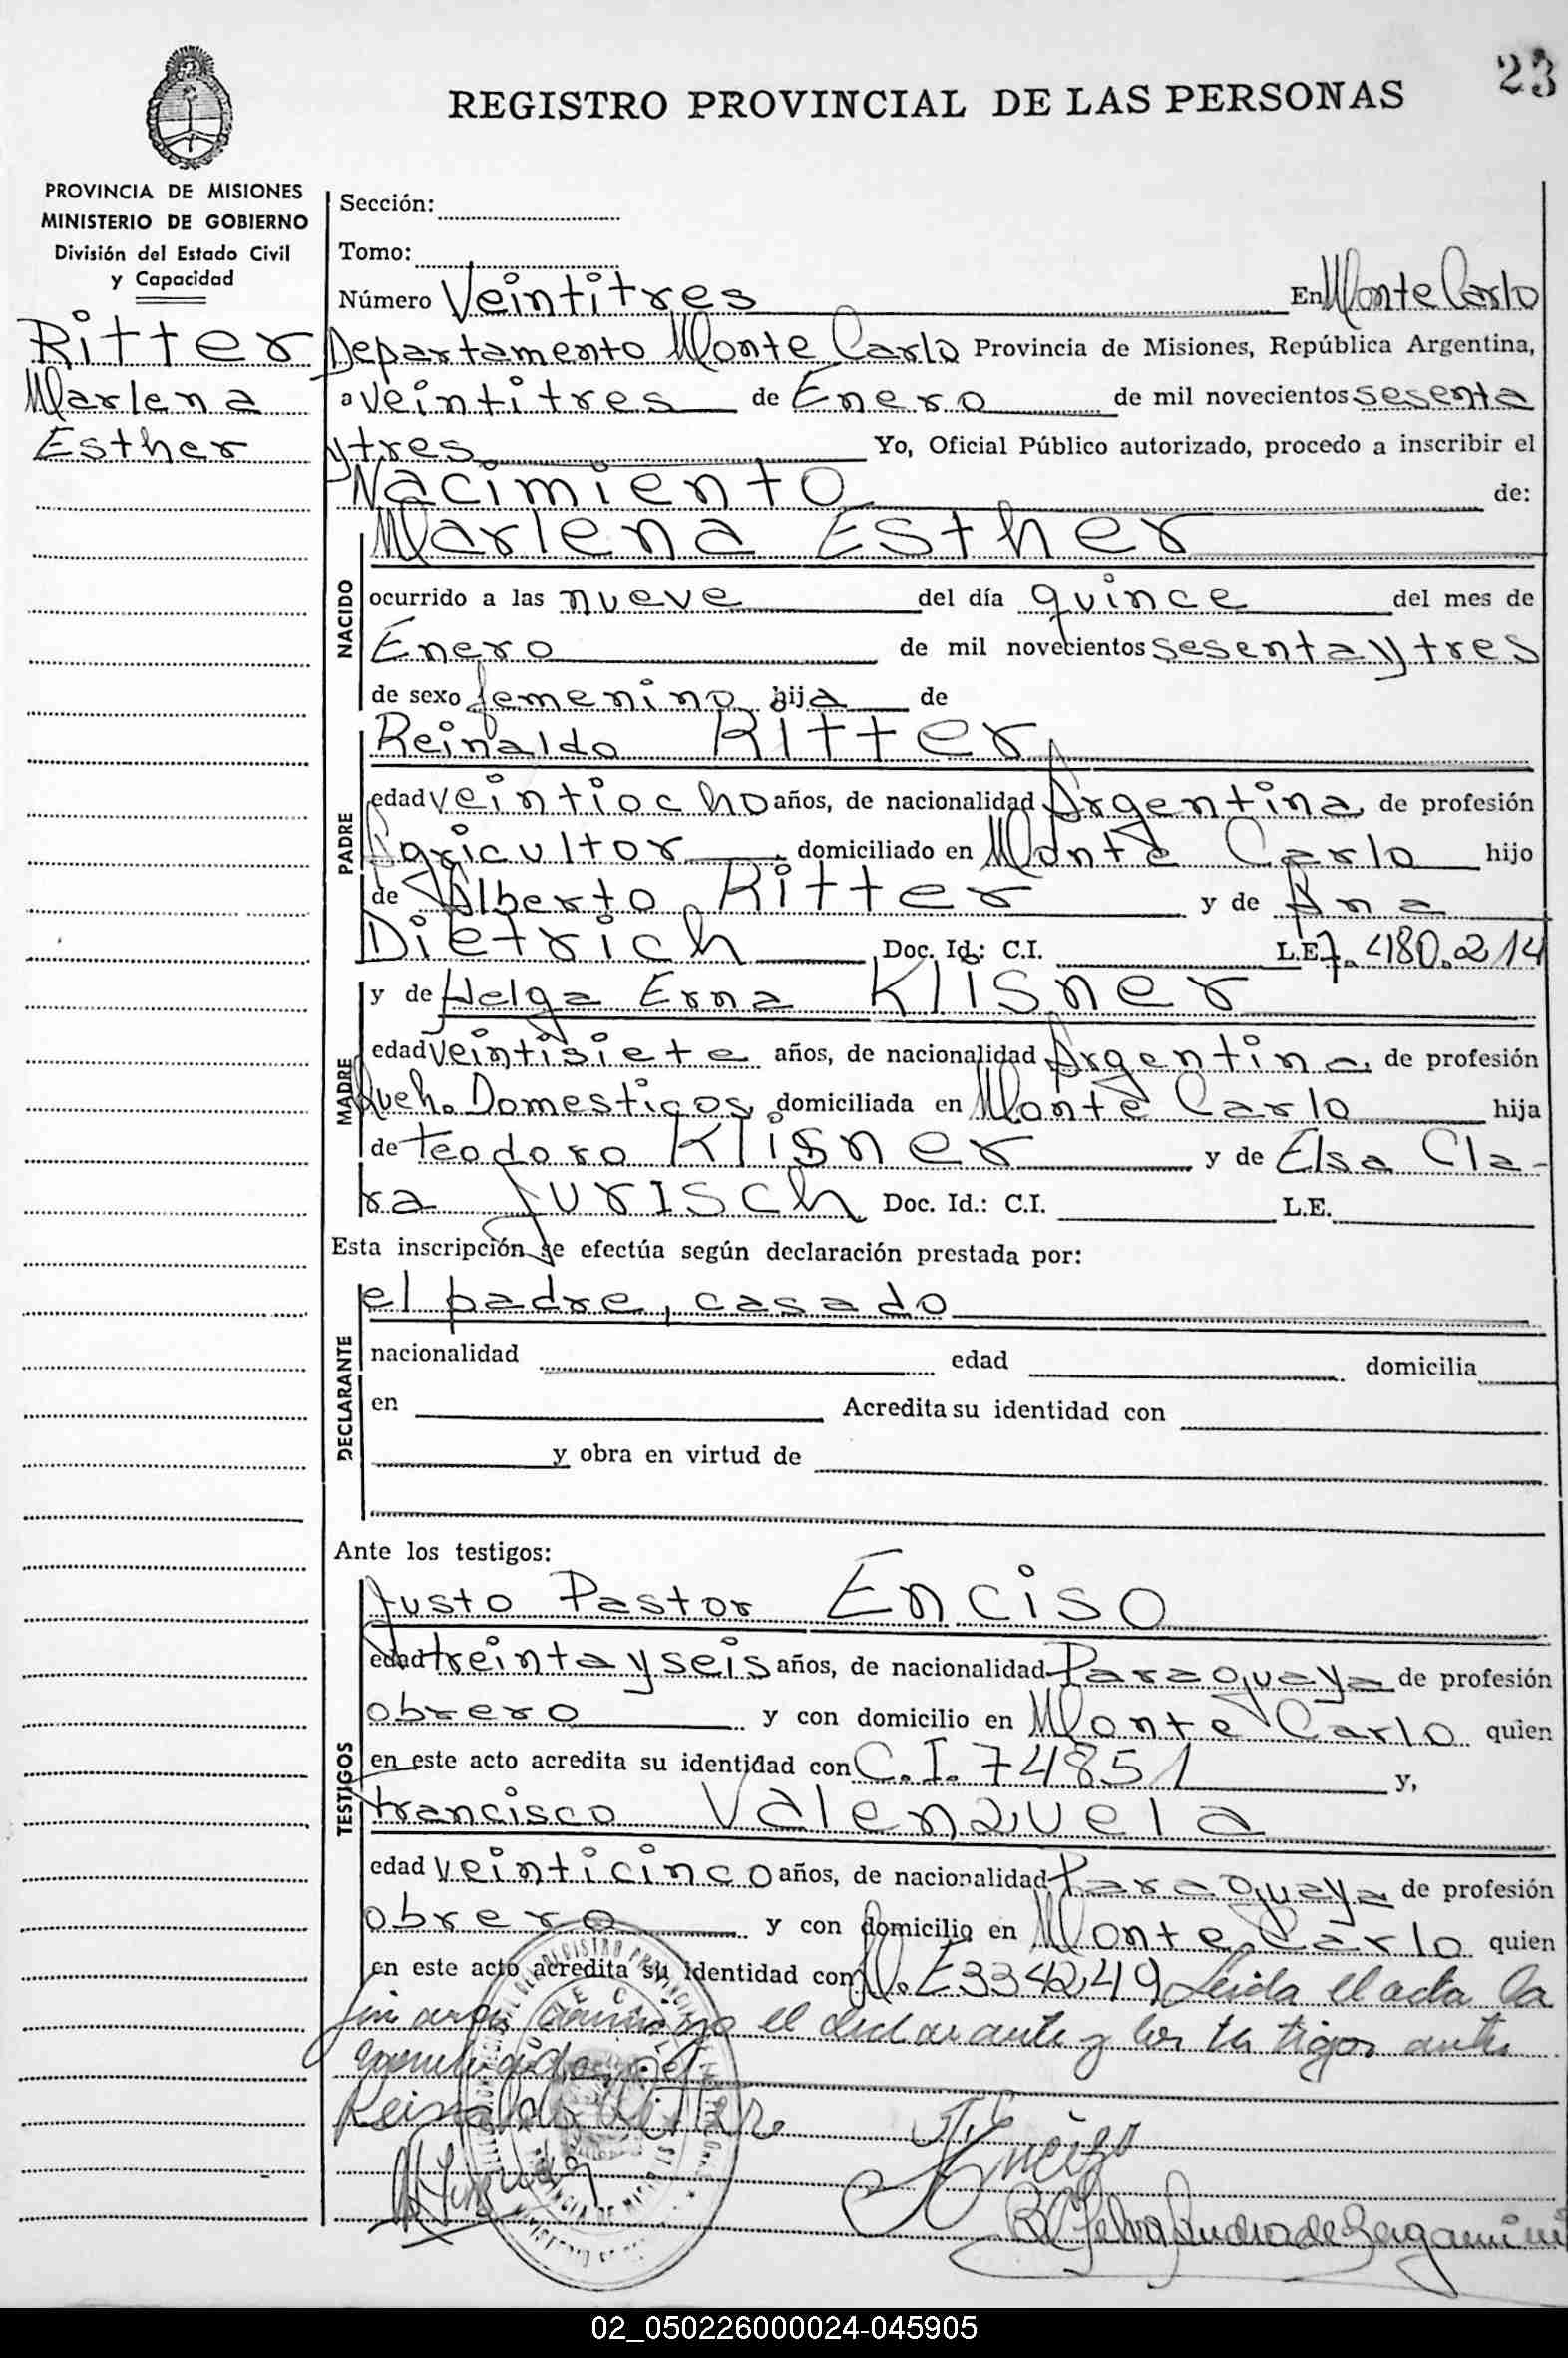 23
REGISTRO PROVINCIAL DE LAS PERSONAS
PROVINCIA DE MISIONES
MINISTERIO DE GOBIERNO
División del Estado Civil
y Capacidad
Ritter
Marlena
Esther
Sección:
Tomo:
Número Veintitres En Monte Carlo
Departamento Monte Carlo Provincia de Misiones, República Argentina,
a veintitres de Enero de mil novecientos sesenta
y tres Yo, Oficial Público autorizado, procedo a inscribir el
Nacimiento de:
NACIDO
Marlena Esther
ocurrido a las nueve del día quince del mes de
Enero de mil novecientos sesenta y tres
de sexo femenino hija de
PADRE
Reinaldo Ritter
edad veintiocho años, de nacionalidad Argentina de profesión
Agricultor domiciliado en Monte Carlo hijo
de Alberto Ritter y de Ana
Dietrich Doc. Id.: C.I. L.E. 7.480.214
MADRE
y de Helga Erna Klisner
edad veintisiete años, de nacionalidad Argentina de profesión
Queh. Domesticos domiciliada en Monte Carlo hija
de Teodoro Klisner y de Elsa Cla-
ra Jurisch Doc. Id.: C.I. L.E.
Esta inscripción se efectúa según declaración prestada por:
DECLARANTE
el padre, casado
nacionalidad edad domicilia
en Acredita su identidad con
y obra en virtud de
Ante los testigos:
TESTIGOS
Justo Pastor Enciso
edad treinta y seis años, de nacionalidad Paraguaya de profesión
obrero y con domicilio en Monte Carlo quien
en este acto acredita su identidad con C.I. 74851 y,
Francisco Valenzuela
edad veinticinco años, de nacionalidad Paraguaya de profesión
obrero y con domicilio en Monte Carlo quien
en este acto acredita su identidad con 334249 Leida el acta la
el declarante y los testigos ante
Reinaldo Ritter
02_050226000024-045905